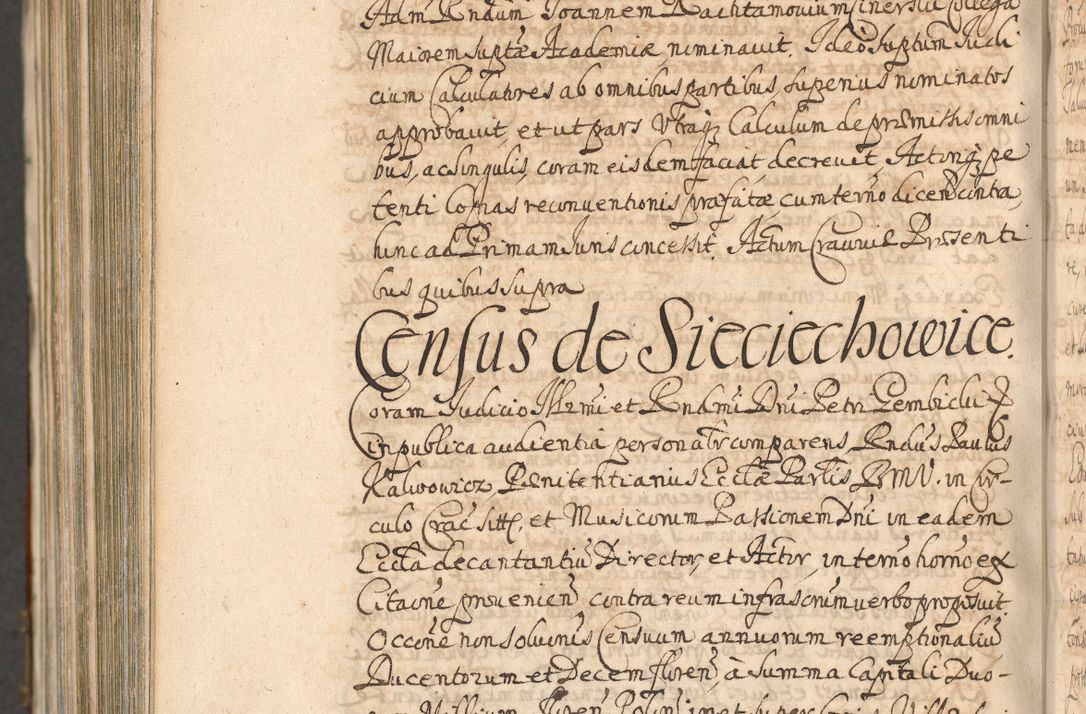 Adm Rndum Joannem Rachtamovium Sinersiu Collega
Maiorem suptæ Academiæ, nominavit. Ideo suptum Judi
cium Calculatores ab omnibus partibus, superius nominatos
approbavit, et ut pars Utraqz Calculum de præmissis omni
bus, ac singulis, coram eisdem faciat decrevit. Actoriqz pe
tenti Copias reconventionis præfatæ cum terno dicen contra
hinc ad Primam Iuris concessit. Actum Cravviæ Præsenti
bus quibus supra
Census de Sieciechowice.
Coram Judicio Illrmi et Rndmi Dni Petri Gembicki &
in publica audientia personalr comparens, Rndus Paulus
Kaliwowicz Pænitentiarius Ecclæ Parlis BMV. in Cir-
culo Crac sitæ, et Musicorum Passionem Dni in eadem
Eccla decantantiu Director, et Actor, in terno horno ex
Citaone provenien contra reum infrascrum verbo proposuit.
Occone non solutionis Censuum annuorum reemptionaliu
Ducentorum et Decem floren à summa Capitali Duo-
rum Millium floren Polon